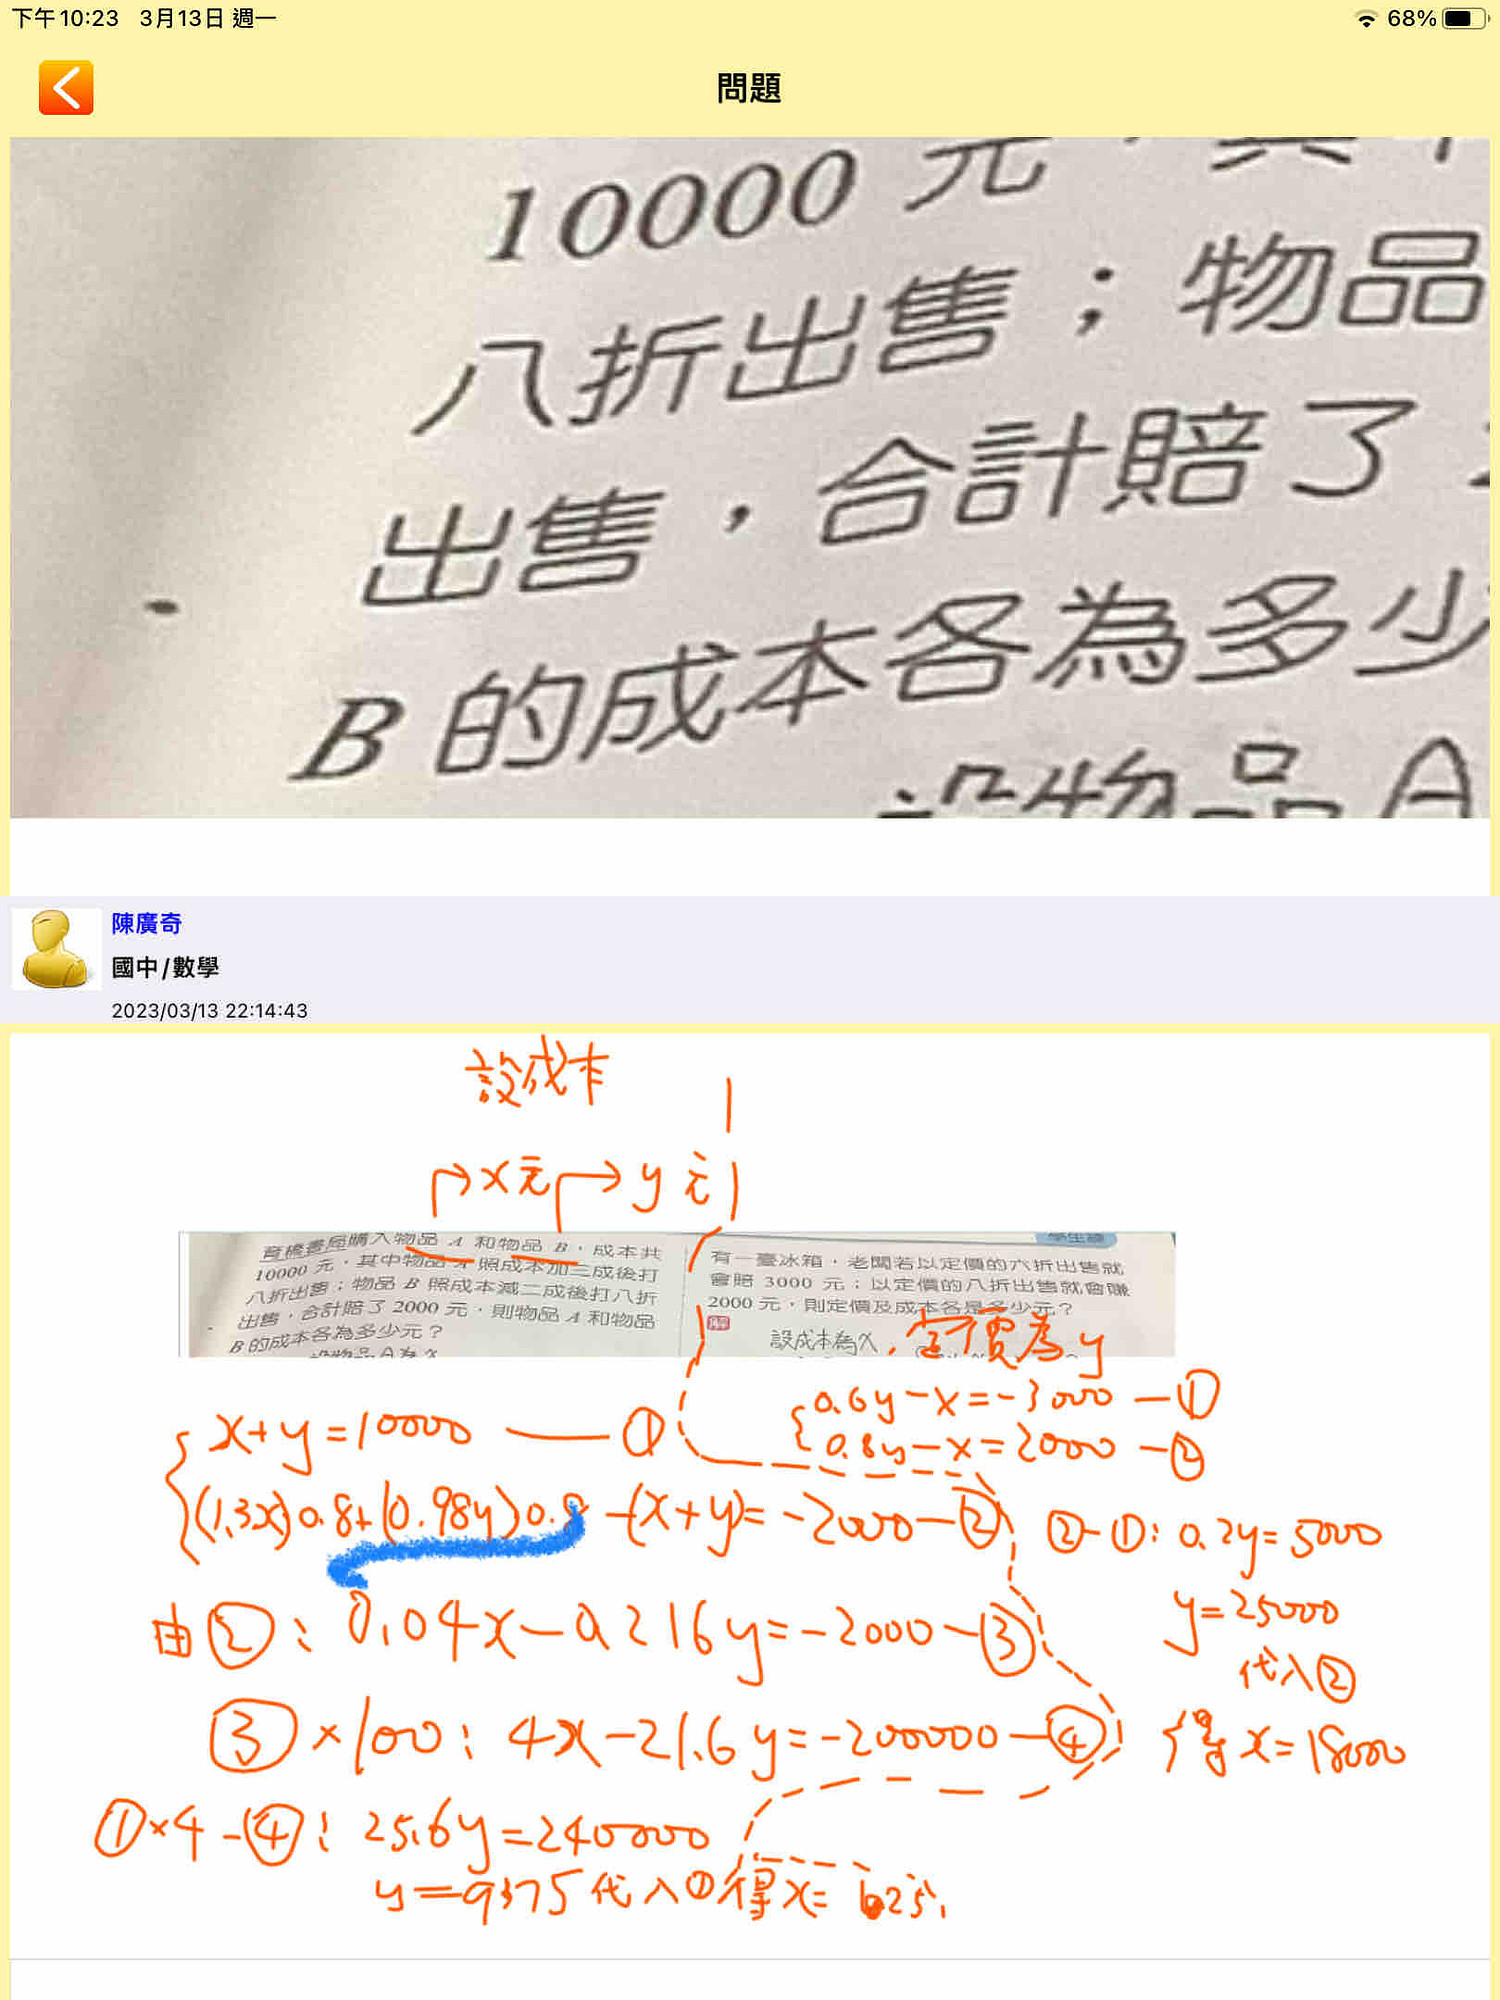 下午10:23 3月13日 週一
68%
問題
10000 元，其中
八折出售；物品
出售，合計賠了
B 的成本各為多少
設物品A
陳廣奇
國中/數學
2023/03/13 22:14:43
設成本
x元 y元
育橋書局購入物品 A 和物品 B，成本共
10000 元，其中物品 A 照成本加三成後打
八折出售；物品 B 照成本減二成後打八折
出售，合計賠了 2000 元，則物品 A 和物品
B 的成本各為多少元？
設物品A為x
學生讀
有一臺冰箱，老闆若以定價的六折出售就
會賠 3000 元；以定價的八折出售就會賺
2000 元，則定價及成本各是多少元？
解
設成本為x，定價為y
x+y=10000 — ①
(1.3x)0.8+(0.98y)0.8-(x+y)=-2000-②
由②：0.04x-0.216y=-2000-③
③×100：4x-21.6y=-200000-④
①×4-④：25.6y=240000
y=9375代入①得x=625
0.6y-x=-3000-①
0.8y-x=2000-②
②-①：0.2y=5000
y=25000
代入②
得x=18000